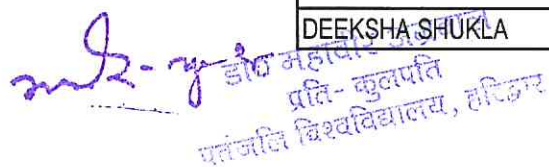 DEEKSHA SHUKLA
डॉ० महावीर अग्रवाल
प्रति-कुलपति
पतंजलि विश्वविद्यालय, हरिद्वार